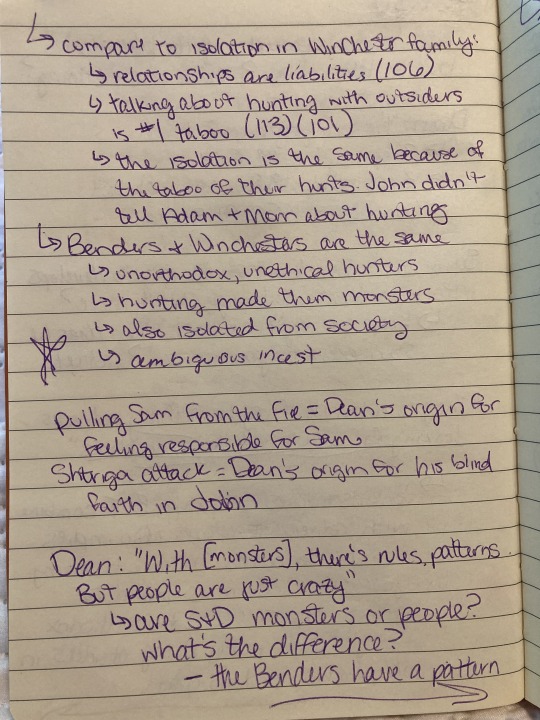 ↳ compare to isolation in Winchester family:
↳ relationships are liabilities (106)
↳ talking about hunting with outsiders
is #1 taboo (113) (101)
↳ the isolation is the same because of
the taboo of their hunts. John didn't
tell Adam + Mom about hunting
↳ Benders + Winchesters are the same
↳ unorthodox, unethical hunters
↳ hunting made them monsters
↳ also isolated from society
↳ ambiguous incest
Pulling Sam from the fire = Dean's origin for
feeling responsible for Sam
Shtriga attack = Dean's origin for his blind
faith in John
Dean: "With [monsters], there's rules, patterns.
But people are just crazy"
↳ are S+D monsters or people?
what's the difference?
- the Benders have a pattern